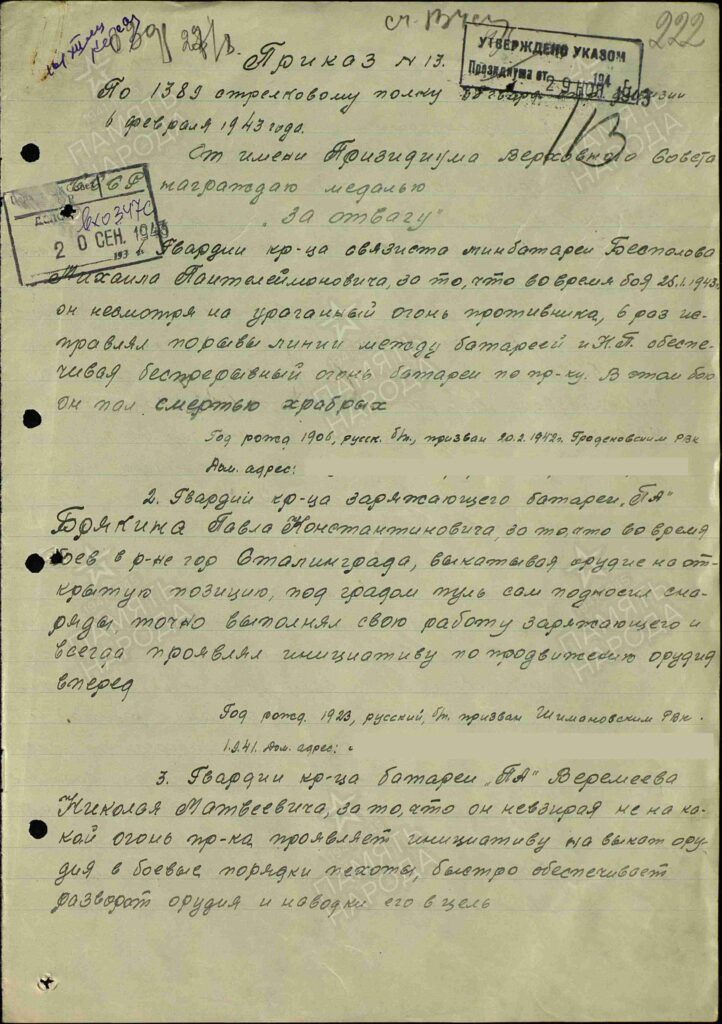 222
УТВЕРЖДЕНО УКАЗОМ
Президиума от 29 НОЯ. 1943
Приказ N 13.
По 1389 стрелковому полку
6 февраля 1943 года.
От имени Призидиума Верховного Совета
СССР награждаю медалью
20 СЕН. 1943
"За отвагу"
1. Гвардии кр-ца связиста минбатареи Беспалова
Михаила Пантелеймоновича, за то, что во время боя 25.1.1943г.
он несмотря на ураганный огонь противника, 6 раз ис-
правлял порывы линии между батареей и Н.П. обеспе-
чивая беспрерывный огонь батареи по пр-ку. В этом бою
он пал смертью храбрых
Год рожд 1906, русск. б/п, призван 20.2.1942г. Гродековским РВК
Дом. адрес:
2. Гвардии кр-ца заряжающего батареи "ПА"
Брякина Павла Константиновича, за то, что во время
боев в р-не гор Сталинграда, выкатывая орудие на от-
крытую позицию, под градом пуль сам подносил сна-
ряды, точно выполнял свою работу заряжающего и
всегда проявлял инициативу по продвижению орудия
вперед
Год рожд. 1923, русский, б/п. призван Шимановским РВК.
1.9.41. Дом. адрес:
3. Гвардии кр-ца батареи "ПА" Веремеева
Николая Матвеевича, за то, что он невзирая не на ка-
кой огонь пр-ка, проявляет инициативу на выкат ору-
дия в боевые порядки пехоты, быстро обеспечивает
разворот орудия и наводки его в цель
ПАМЯТЬ НАРОДА